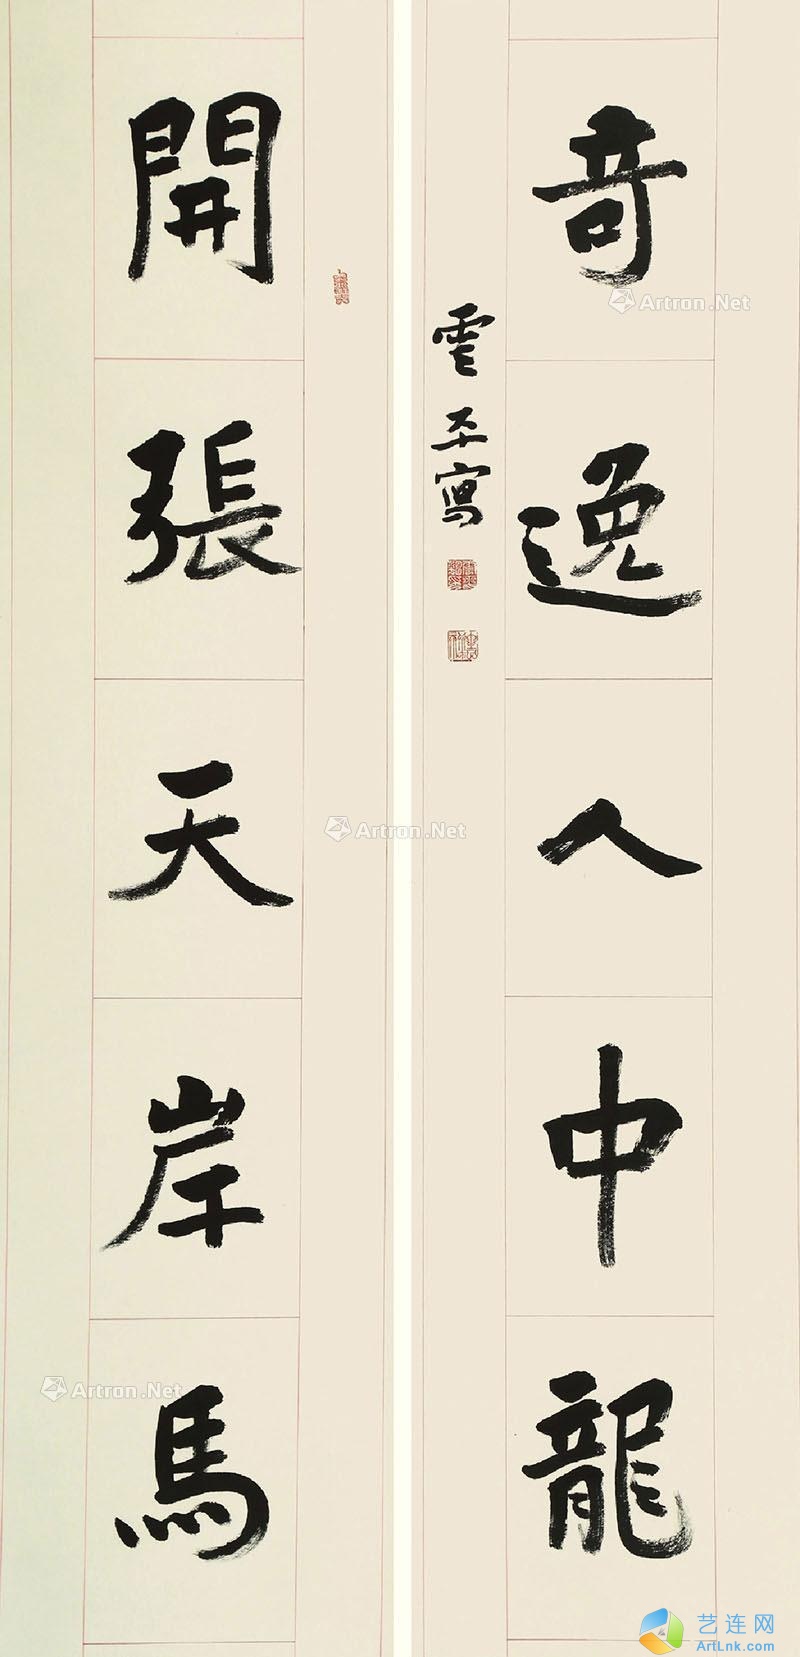 開張天岸馬
奇逸人中龍
雲平寫
Artron.Net
Artron.Net
Artron.Net
艺连网
ArtLnk.com